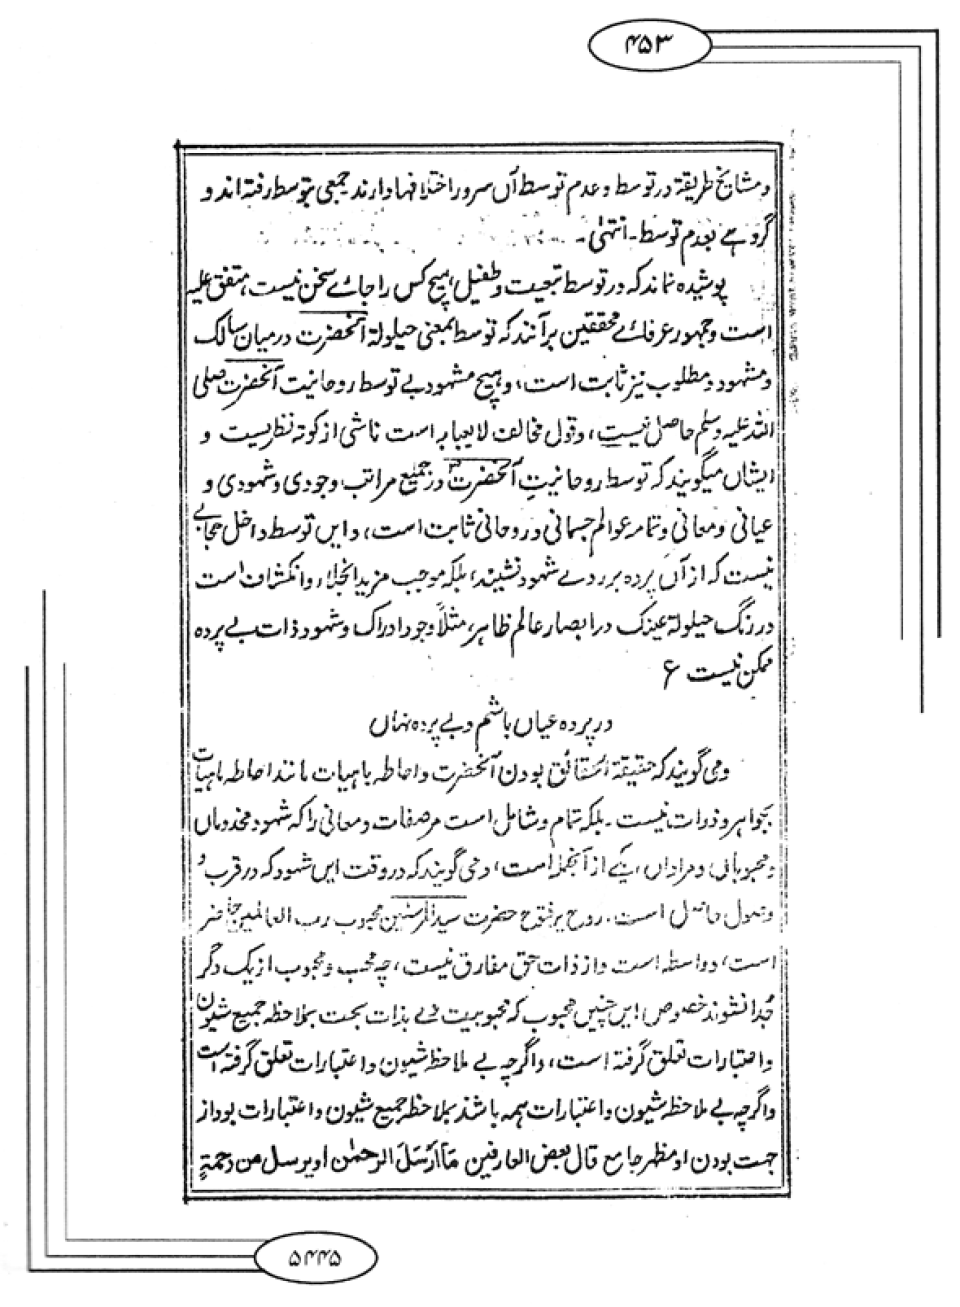 ۴۵۳
و مشایخ طریقۃ در توسط و عدم توسط آں سرور اختلافہا دارند جمعی بتوسط رفتہ اند و
گروہے بعدم توسط۔ انتہیٰ۔
پوشیدہ نماند کہ در توسط تبعیت و طفیل ہیچ کس را جاۓ سخن نیست، متفق علیہ
است و جمہور عرفاۓ محققین برآنند کہ توسط بمعنی حیلولۃ آنحضرت درمیان سالک
و مشہود و مطلوب نیز ثابت است، و ہیچ مشہود بے توسط روحانیت آنحضرت صلی
اللہ علیہ وسلم حاصل نیست، و قول مخالف لایعبابہ است ناشی از کوتہ نظریست و
ایشاں میگویند کہ توسط روحانیت آنحضرتؐ در جمیع مراتب وجودی و شہودی و
عیانی و معانی و تمام عوالم جسمانی و روحانی ثابت است، و ایں توسط داخل حجابے
نیست کہ ازاں پردہ بر روے شہود نشیند، بلکہ موجب مزید انجلاء و انکشاف است
در رنگ حیلولۃ عینک در ابصار عالم ظاہر، مثلاً وجود ادراک و شہود ذات بے پردہ
ممکن نیست ؏
در پردہ عیاں باشم و بے پردہ نہاں
و می گویند کہ حقیقۃ الحقائق بودن آنحضرت و احاطہ باہیات مانند احاطہ ماہیات
بجواہر و ذرات نیست۔ بلکہ تمام و شامل است مر صفات و معانی را کہ شہود مخدوماں
و محبوباں و مراداں، یکے از آنجملہ است، و می گویند کہ در وقت ایں شہود کہ در قرب و
وصول حاصل است، روح پرفتوح حضرت سید المرسلین محبوب رب العالمین حاضر
است، و واسطہ است و از ذات حق مفارق نیست، چہ محب و محبوب از یک دگر
جُدا نشوند خصوص ایں چنیں محبوب کہ محبوبیت وے بذات بحت بملاحظہ جمیع شیون
و اعتبارات تعلق گرفتہ است، و اگرچہ بے ملاحظہ شیون و اعتبارات تعلق گرفتہ است
و اگرچہ بے ملاحظہ شیون و اعتبارات ہمہ باشد بملاحظہ جمیع شیون و اعتبارات بود از
جہت بودن او مظہر جامع قال بعض العارفین مَا اَرْسَلَ الرحمٰن او یرسل من رحمۃٍ
۵۴۴۵